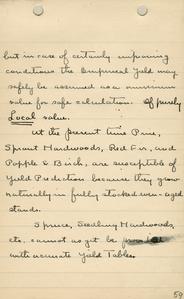 but in case of certainly improving
conditions the Empirical Yield may
safely be assumed as a minimum
value for safe calculation. Of purely
Local value.
At the present time Pine,
Sprout Hardwoods, Red Fir, and
Popple & Birch, are susceptible of
Yield Prediction because they grow
naturally in fully stocked even-aged
stands.
Spruce, Seedling Hardwoods,
etc. cannot as yet be
with accurate Yield Tables.
50